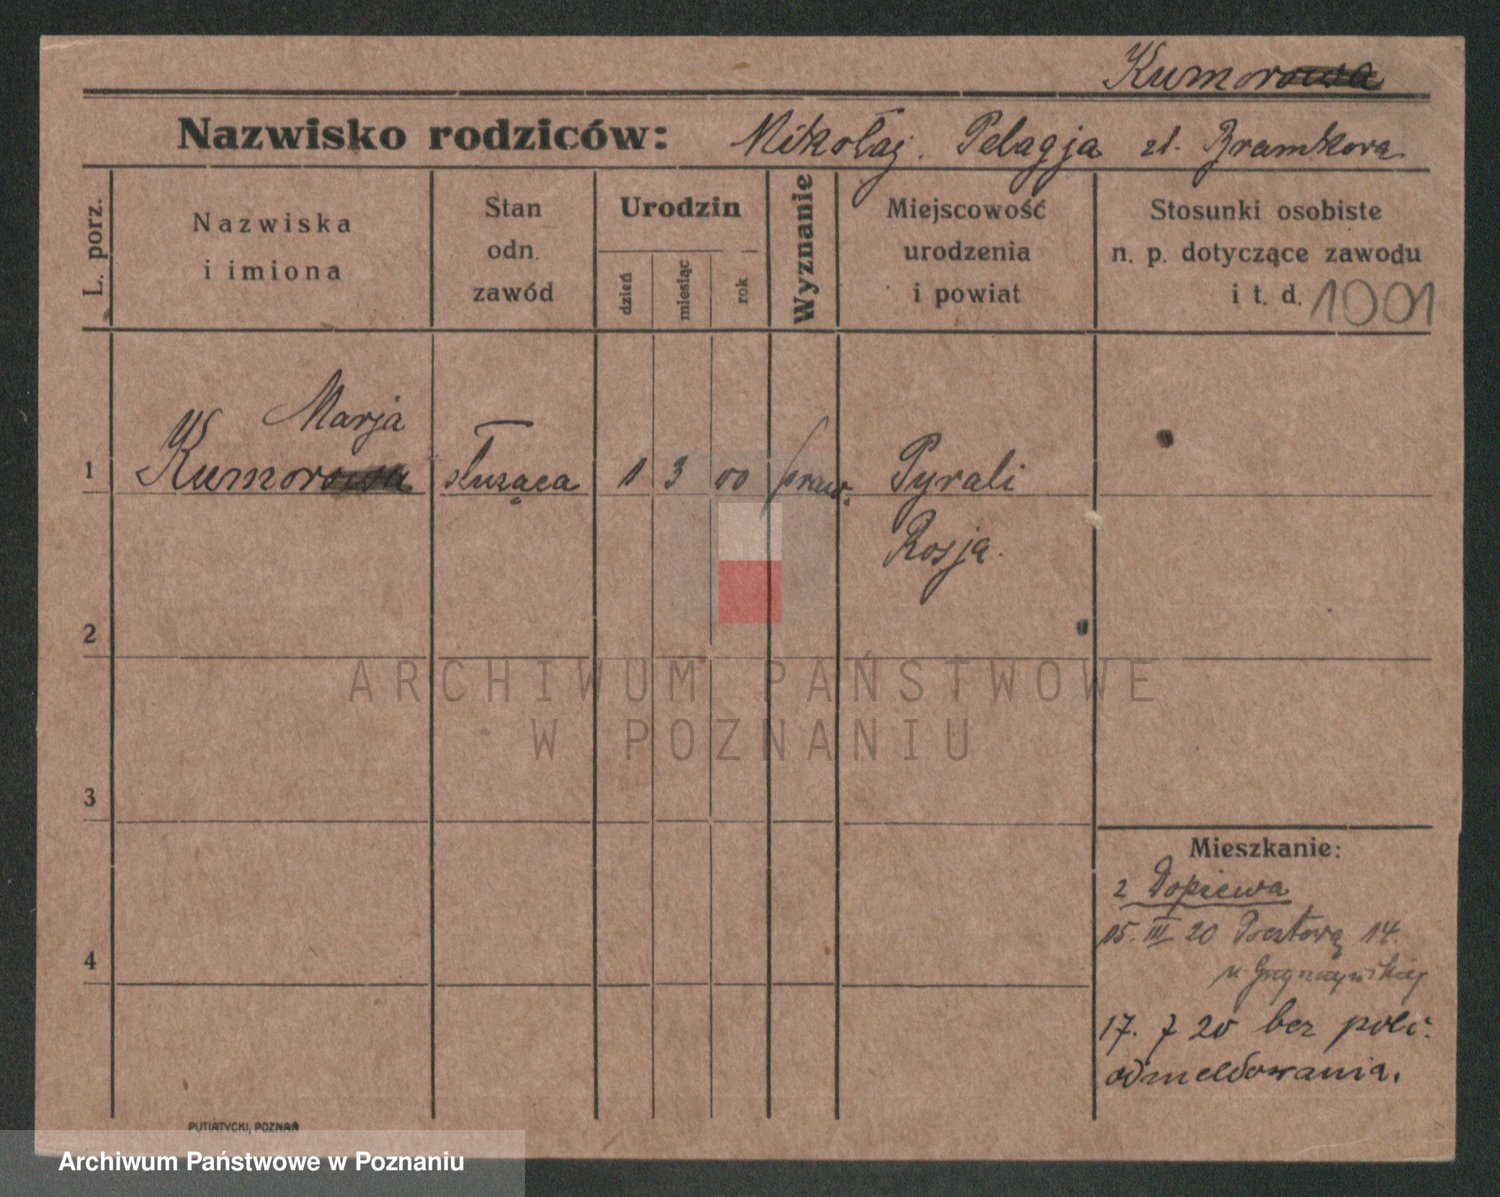 Kumorowa
Nazwisko rodziców: Mikołaj. Pelagja zd. Bramkora
L. porz.
Nazwiska
i imiona
Stan
odn.
zawód
Urodzin
dzień
miesiąc
rok
Wyznanie
Miejscowość
urodzenia
i powiat
Stosunki osobiste
n. p. dotyczące zawodu
i t. d. 1001
Marja
1 Kumorowa służąca 1 3 00 praw. Pyrali
Rosja.
2
3
4
Mieszkanie:
z Dopiewa
15. III 20 14.
17. 7 20 bez poli.
odmeldowania.
PUTIATYCKI, POZNAŃ
ARCHIWUM PAŃSTWOWE
W POZNANIU
Archiwum Państwowe w Poznaniu